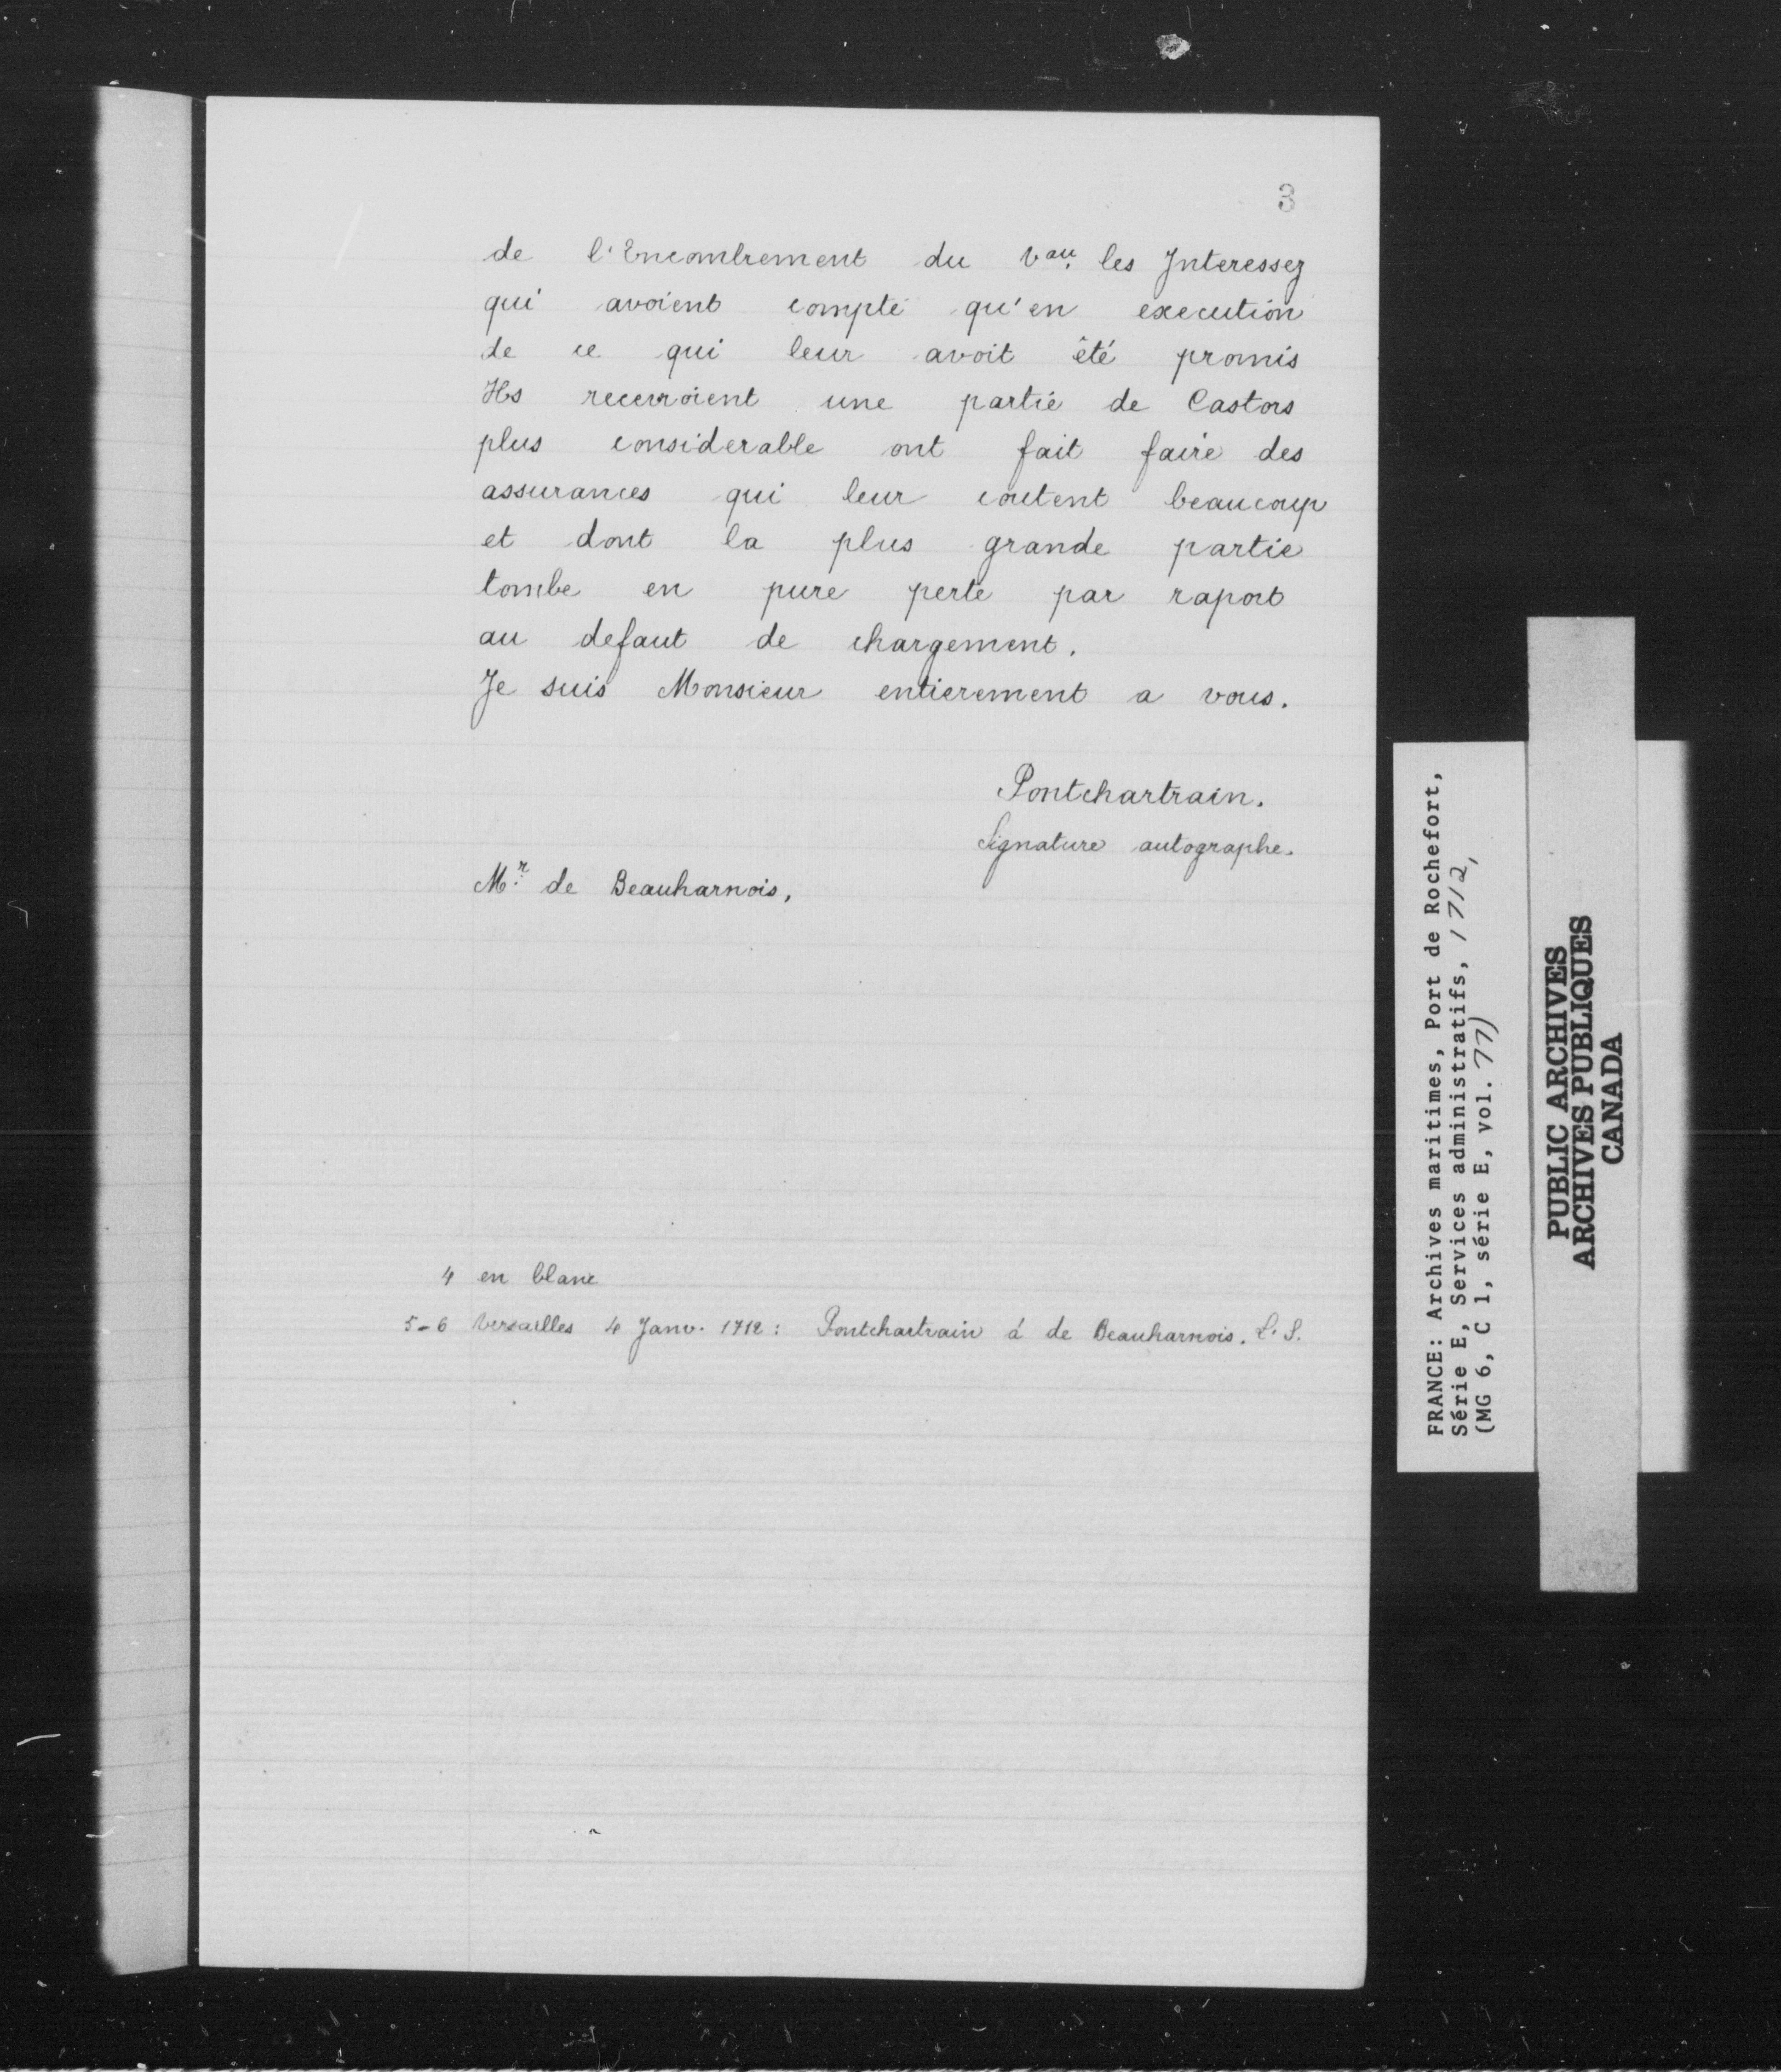 3
de l'Encombrement du Vau. les Interessez
qui avoient compté qu'en execution
de ce qui leur avoit été promis
Ils recevroient une partie de Castors
plus considerable ont fait faire des
assurances qui leur coutent beaucoup
et dont la plus grande partie
tombe en pure perte par raport
au defaut de chargement.
Je suis Monsieur entierement a vous.
Pontchartrain.
Signature autographe.
Mr. de Beauharnois,
4 en blanc
5-6 Versailles 4 Janv. 1712: Pontchartrain á de Beauharnois. L. S.
FRANCE: Archives maritimes, Port de Rochefort,
Série E, Services administratifs, 1712,
(MG 6, C 1, série E, vol. 77)
PUBLIC ARCHIVES
ARCHIVES PUBLIQUES
CANADA